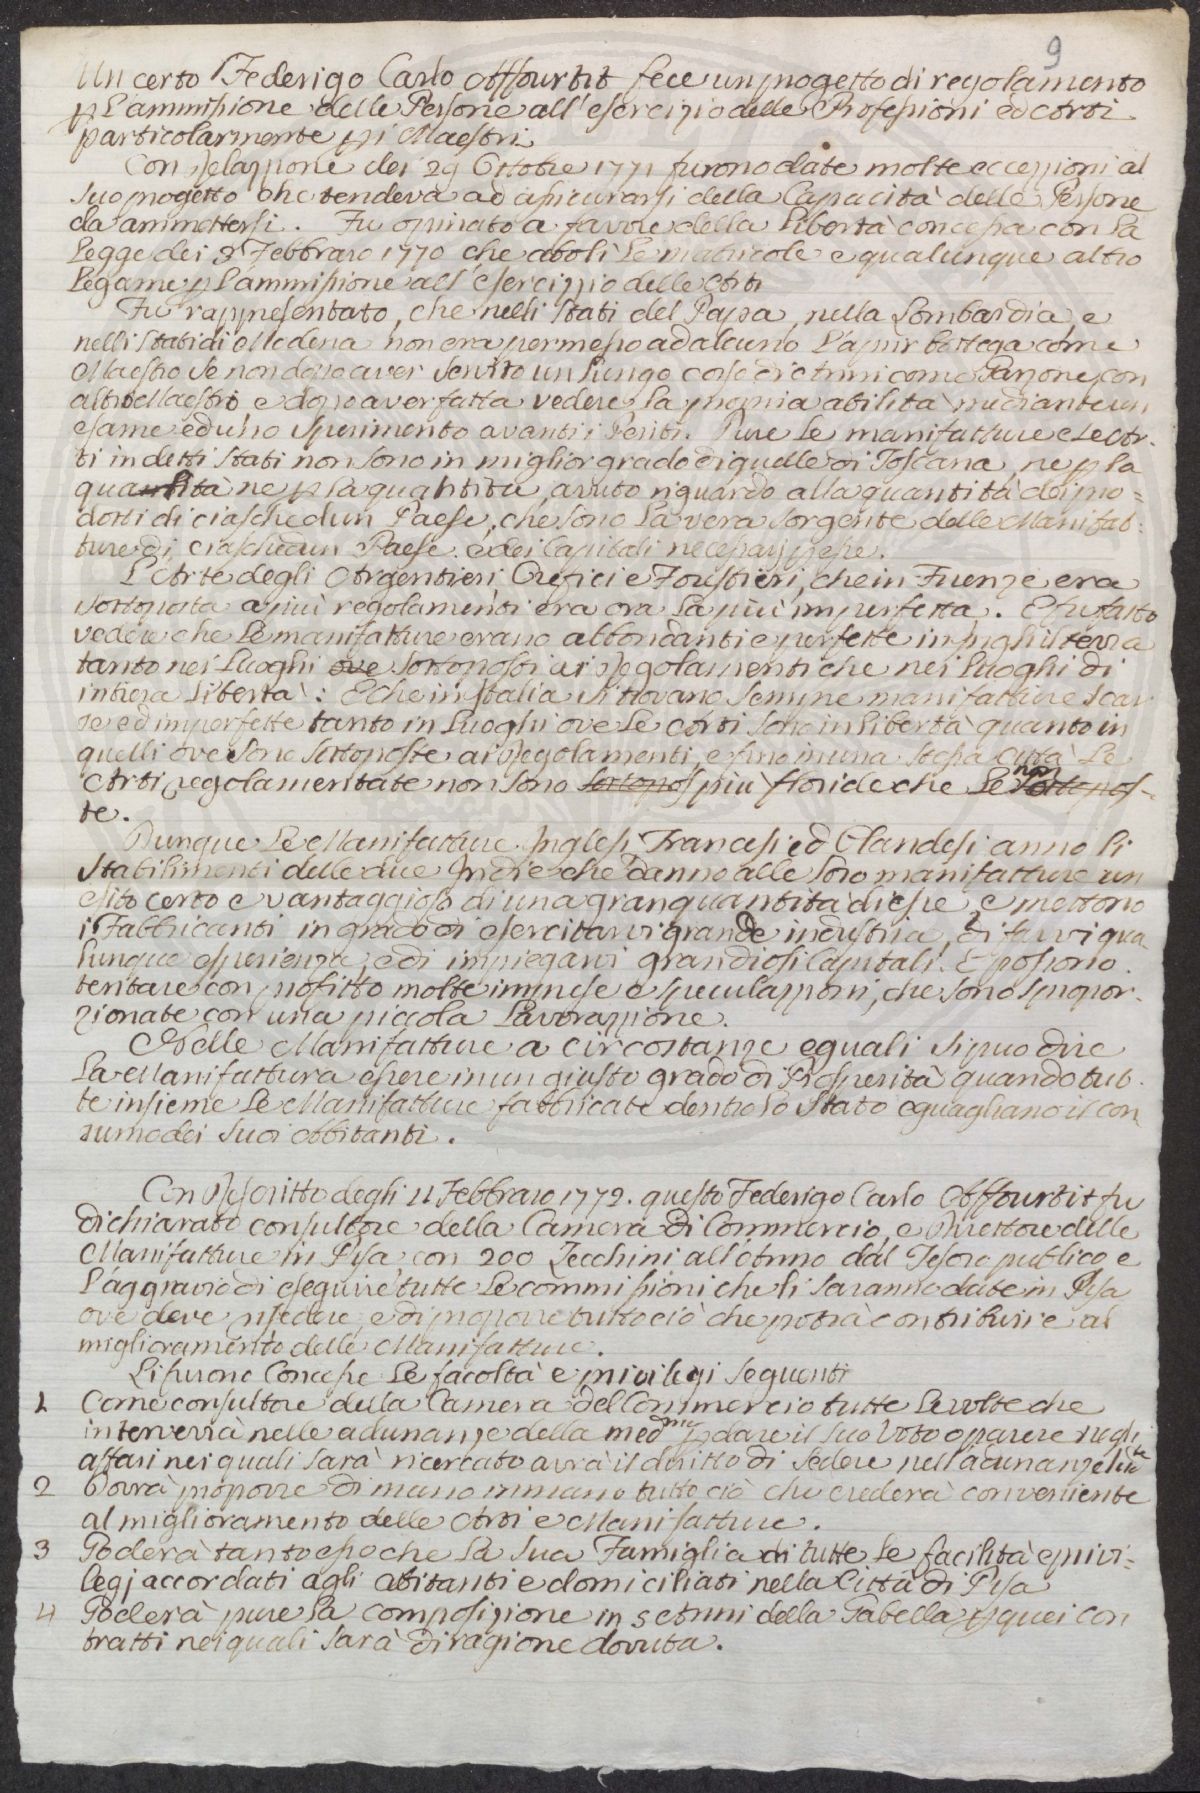 9
Un certo Federigo Carlo Affourtit fece un progetto di regolamento
p l'ammissione delle Persone all'esercizio delle Professioni ed Arti
particolarmente p i Maestri
Con Relazzione dei 29 Ottobre 1771 furono date molte eccezzioni al
suo progetto che tendeva ad assicurarsi della Capacità delle Persone
da ammettersi. Fu opinato a favore della libertà concessa con la
Legge dei 3 Febbraro 1770 che abolì le matricole e qualunque altro
legame p l'ammissione all'esercizzio delle Arti
Fu rappresentato, che nelli Stati del Papa, nella Lombardia, e
nelli Stati di Modena non era permesso ad alcuno l'aprir bottega come
Maestro se non dopo aver servito un lungo corso di Anni come Garzone con
altro Maestro, e dopo aver fatta vedere la propria abilità mediante un
esame ed uno sperimento avanti i Periti. Pure le manifatture e le Ar-
ti in detti Stati non sono in miglior grado di quelle di Toscana, ne p la
qualità ne p la quantità, avuto riguardo alla quantità dei pro=
dotti di ciaschedun Paese, che sono la vera sorgente delle Manifat-
ture di ciaschedun Paese. e dei Capitali necessarj p esse.
L'Arte degli Argentieri, Orefici e Forestieri, che in Firenze era
sottoposta a più regolamenti era ora la più imperfetta. E fu fatto
vedere che le manifatture erano abbondanti e perfette in Inghilterra
tanto nei luoghi ove sottoposti ai Regolamenti che nei luoghi di
intiera libertà: E che in Italia si trovano sempre manifatture scar
se ed imperfette tanto in luoghi ove le Arti sono in libertà quanto in
quelli ove sono sottoposte ai Regolamenti, e fino in una stessa Città le
Arti regolamentate non sono sottopos più floride che le non sottopos-
te.
Dunque le Manifatture Inglesi Francesi ed Olandesi anno li
Stabilimenti delle due Indie che danno alle loro manifatture un
esito certo e vantaggioso di una gran quantità di esse, e mettono
i Fabbricanti in grado di esercitarvi grande industria, di farvi qua
lunque esperienza, e di impiegarvi grandiosi Capitali. E possono
tentare con profitto molte imprese e speculazzioni, che sono spropor-
zionate con una piccola lavorazzione.
Nelle Manifatture a circostanze eguali si può dire
la Manifattura essere in un giusto grado di Prosperità quando tut-
te insieme le Manifatture fabbricate dentro lo Stato eguagliano il con
sumo dei suoi Abitanti.
Con Rescritto degli 11 Febbraro 1772. questo Federigo Carlo Affourtit fu
dichiarato consultore della Camera di Commercio, e Direttore delle
Manifatture in Pisa con 200 Zecchini all'Anno dal Tesoro publico, e
l'aggravio di eseguire tutte le commissioni che li saranno date in Pisa
ove deve risedere, e di proporre tutto ciò che potrà contribuire al
miglioramento delle Manifatture.
Li furono Concesse le facoltà e privilegi seguenti
1 Come consultore della Camera del Commercio tutte le volte che
interverrà nelle adunanze della med.ma p dare il suo Voto o parere negli
affari nei quali sarà ricercato avrà il diritto di sedere nell'adunanze
2 Dovrà proporre di mano in mano tutto ciò che crederà conveniente
al miglioramento delle Arti e Manifatture.
3 Goderà tanto esso che la sua Famiglia di tutte le facilità e privi-
legj accordati agli abitanti e domiciliati nella Città di Pisa
4 Goderà pure la composizione in 5 Anni della Gabella p quei con
tratti nei quali sarà di ragione dovuta.